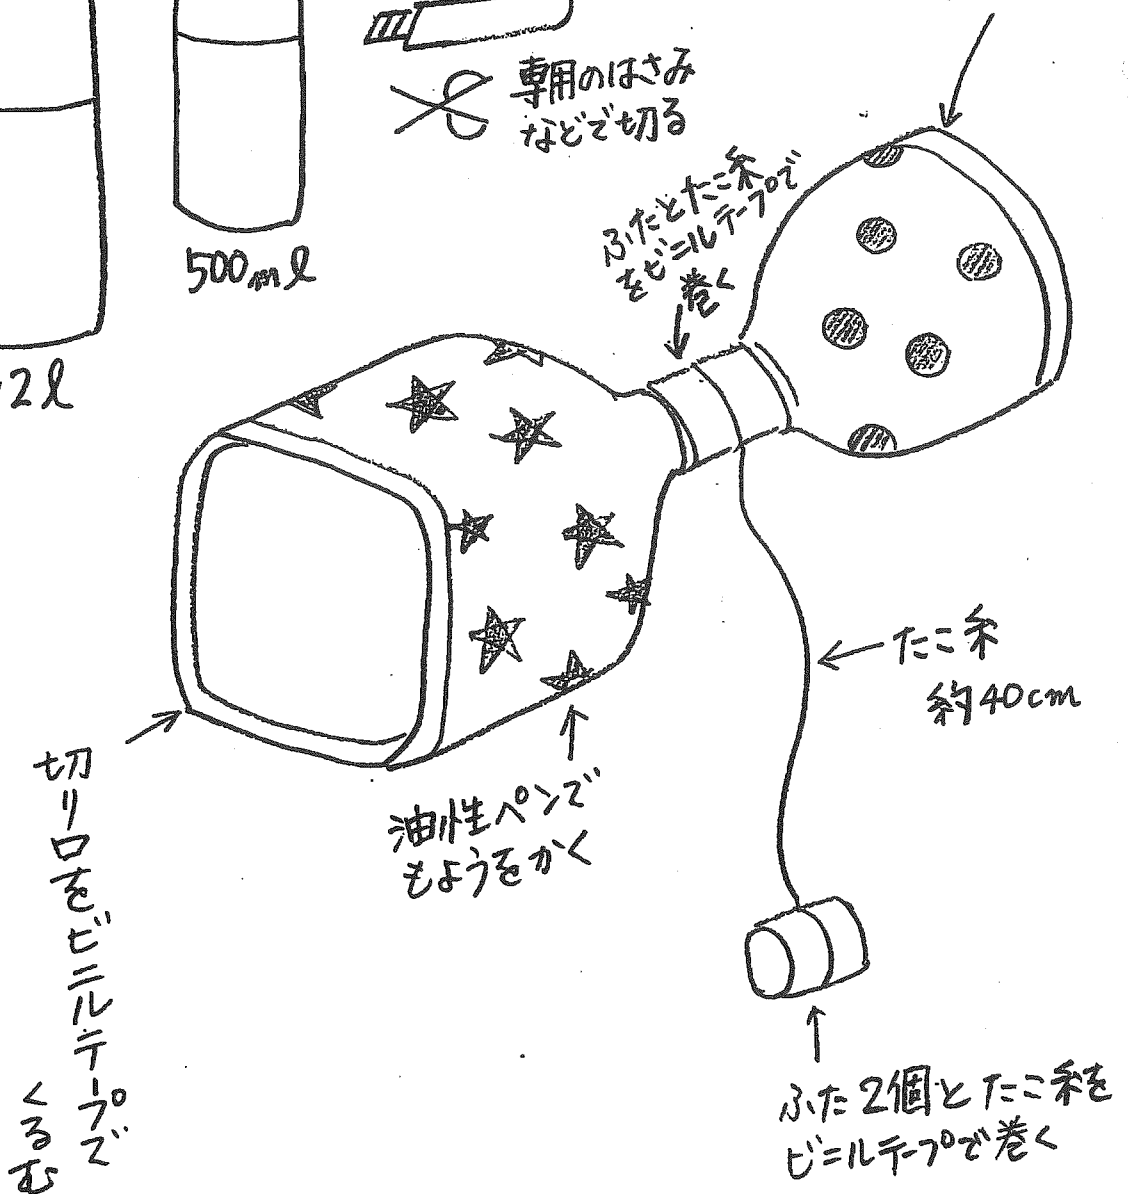 専用のはさみ
などで切る
500ml
2l
ふたとたこ糸
をビニルテープで
巻く
たこ糸
約40cm
油性ペンで
もようをかく
切り口をビニルテープで
くるむ
ふた2個とたこ糸を
ビニルテープで巻く